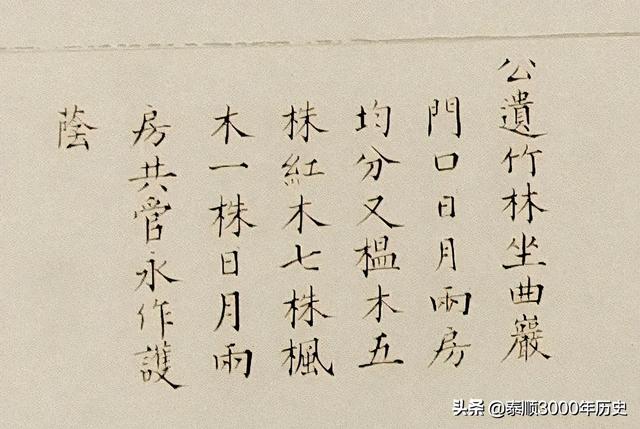 公遺竹林坐曲巖
門口日月兩房
均分又榲木五
株紅木七株楓
木一株日月兩
房共管永作護
蔭
头条 @泰顺3000年历史